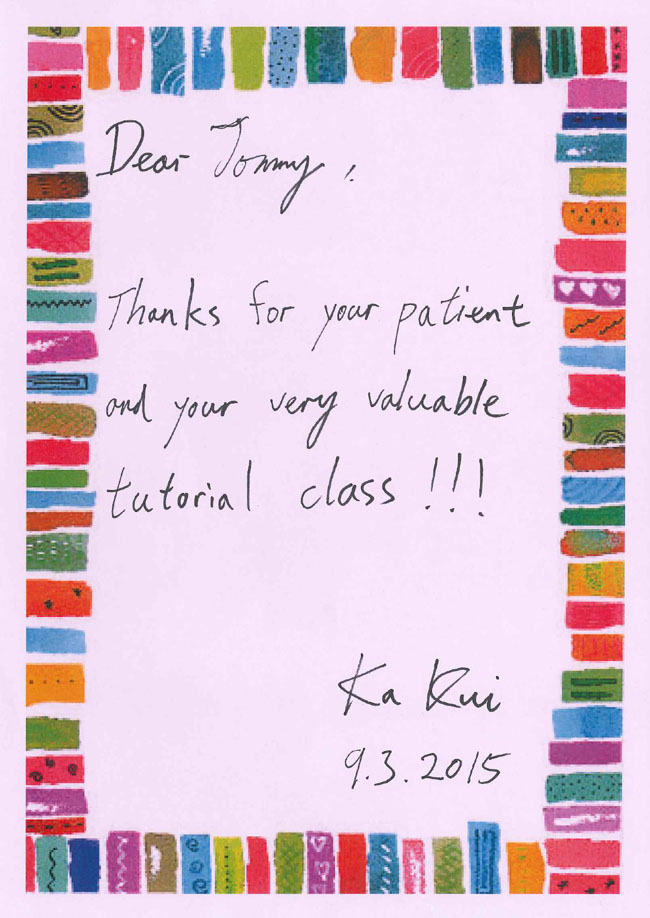 Dear Tommy,
Thanks for your patient
and your very valuable
tutorial class !!!
Ka Kui
9.3.2015